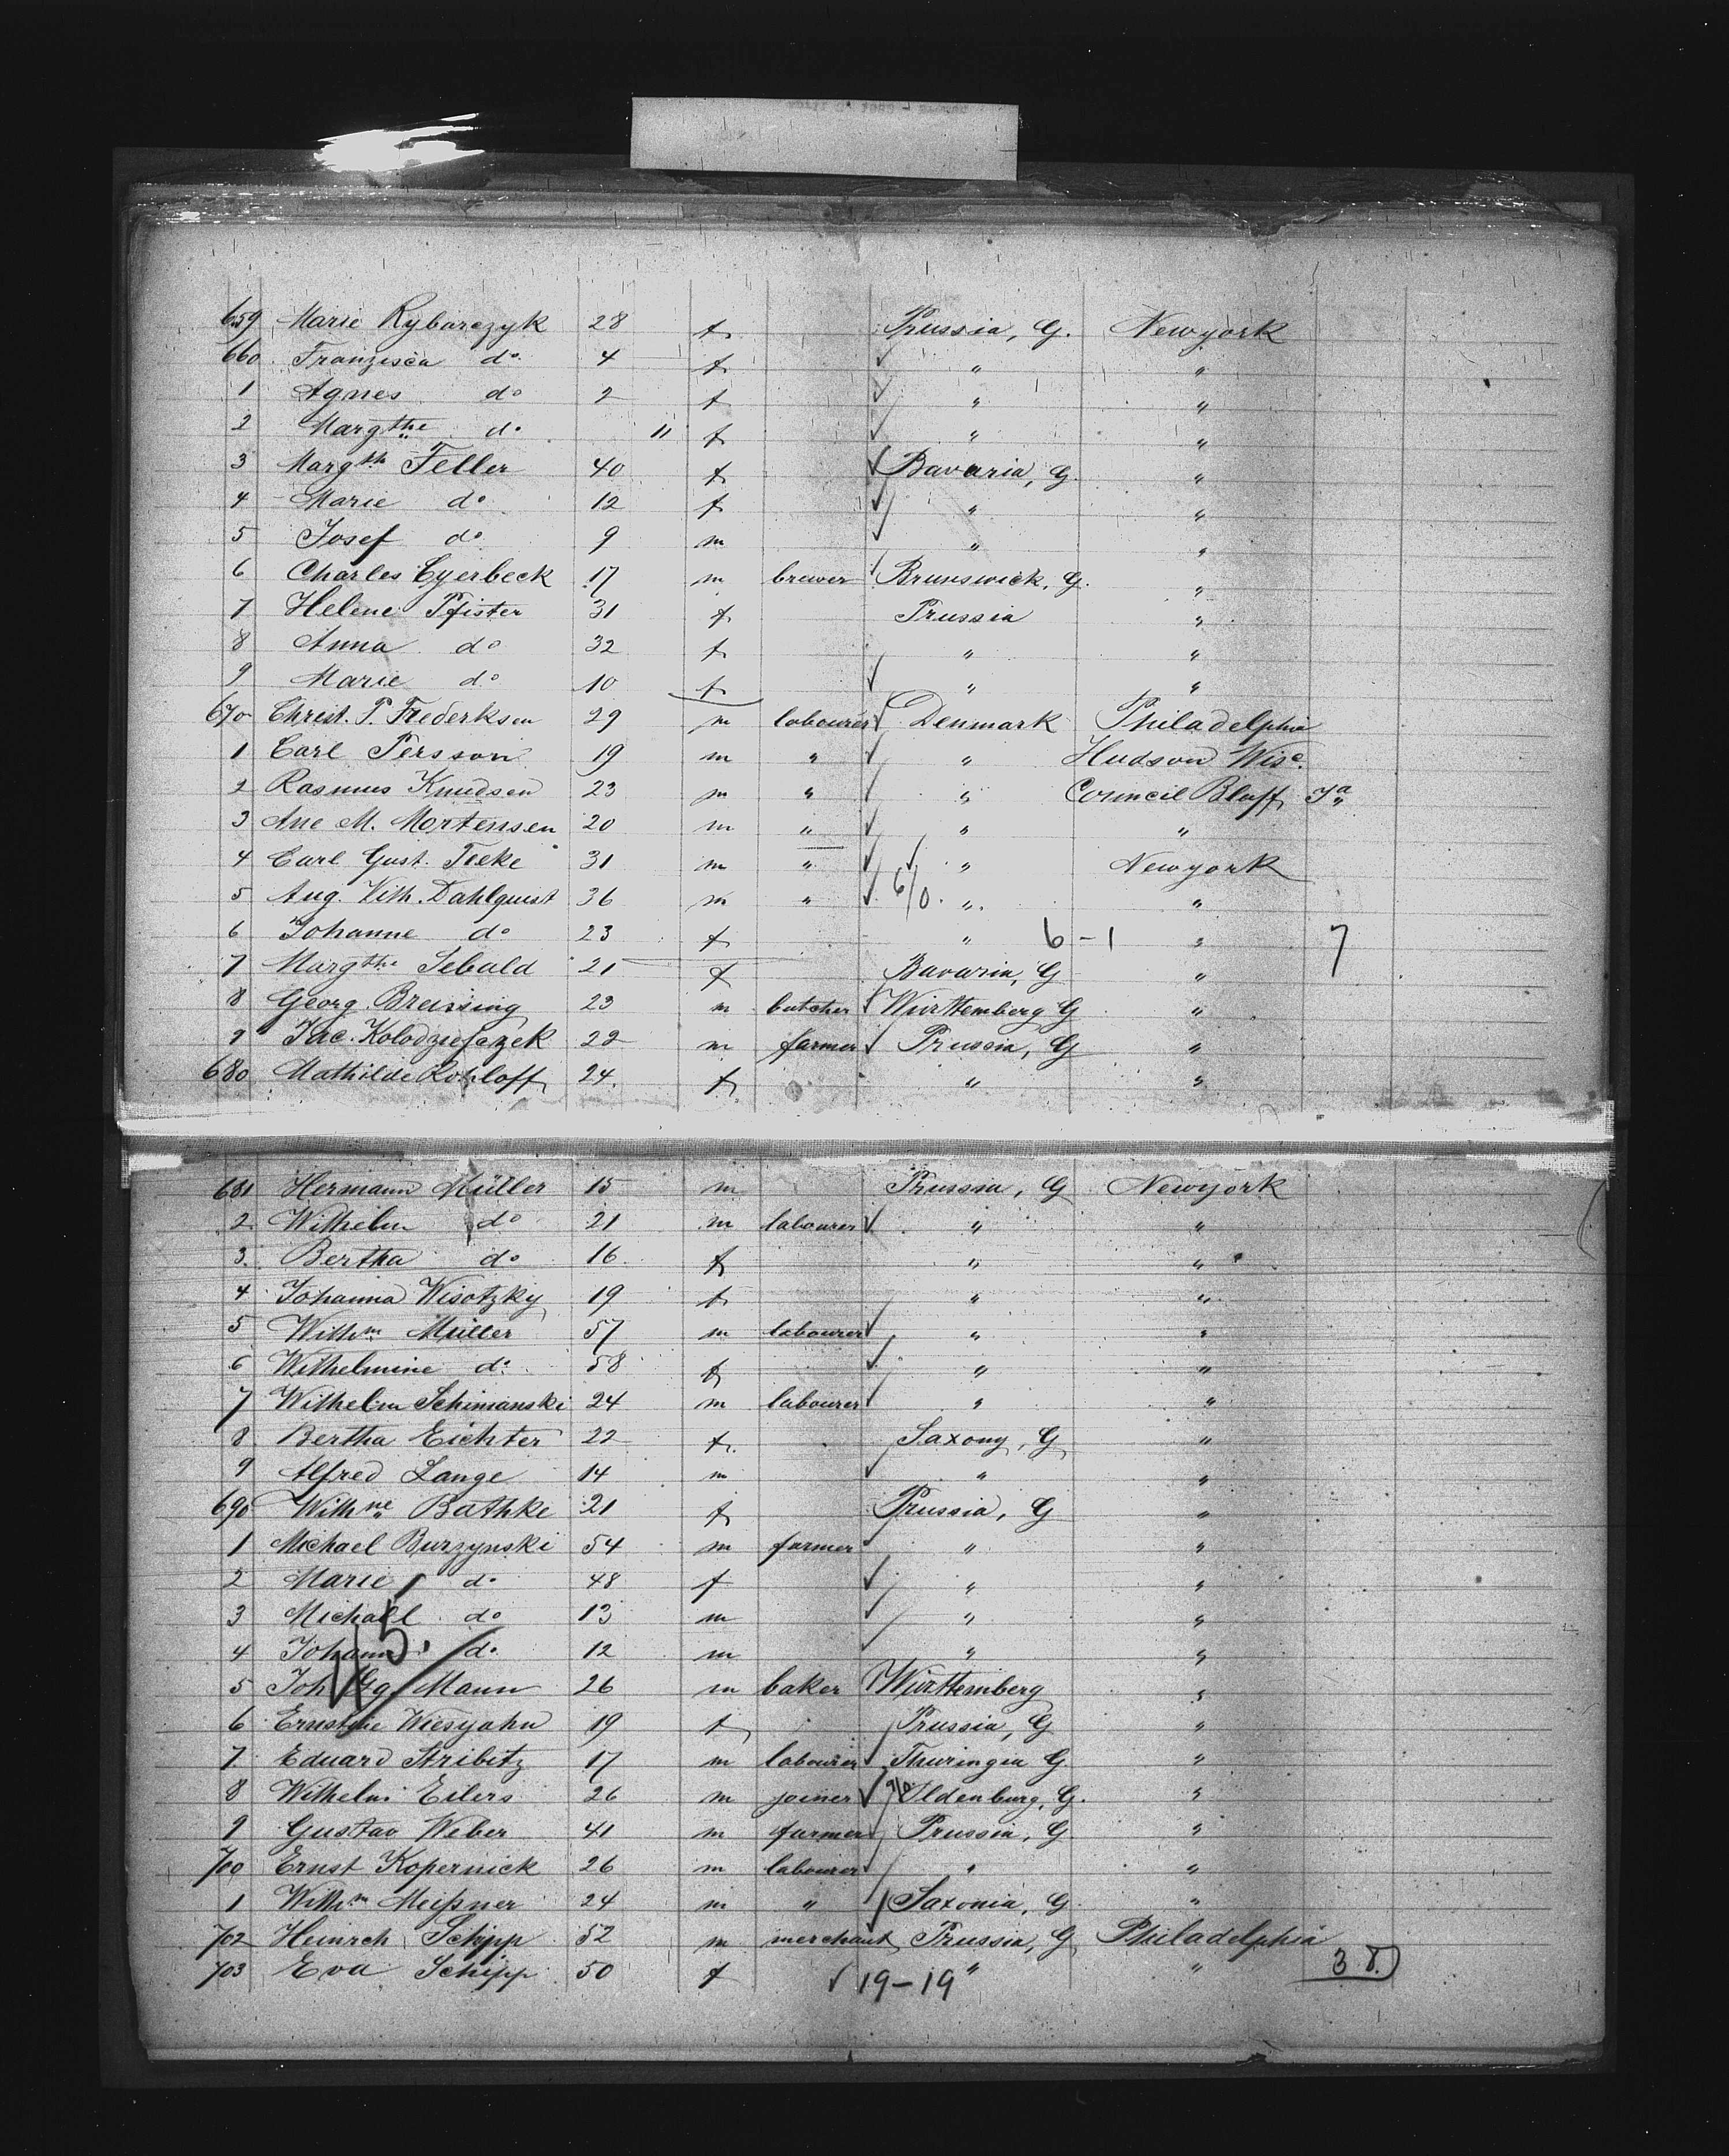 659 Marie Rybarczyk 28 f Prussia, G. Newyork
660 Franzisca do 4 f " "
1 Agnes do 2 f " "
2 Margthe do 11 f " "
3 Margth Feller 40 f Bavaria, G. "
4 Marie do 12 f " "
5 Josef do 9 m " "
6 Charles Eyerbeck 17 m brewer Brunswick, G. "
7 Helene Pfister 31 f Prussia "
8 Anna do 32 f " "
9 Marie do 10 f " "
670 Christ. P. Frederksen 29 m labourer Denmark Philadelphia
1 Carl Persson 19 m " " Hudson Wisc.
2 Rasmus Knudsen 23 m " " Council Bluff Ia
3 Ane M. Mortensen 20 m " " " "
4 Carl Gust. Feeke 31 m " " Newyork
5 Aug. Vilh. Dahlquist 36 m " 6/0. " "
6 Johanne do 23 f " 6-1 " 7
7 Margthe Sebald 21 f Bavaria, G "
8 Georg Breising 23 m butcher Württemberg G "
9 Jac. Kolodziefczek 22 m farmer Prussia, G "
680 Mathilde Rohloff 24. f " "
681 Hermann Müller 15 m Prussia, G Newyork
2 Wilhelm do 21 m labourer " "
3. Bertha do 16 f " "
4 Johanna Wisotzky 19 f " "
5 Wilhm Müller 57 m labourer " "
6 Wilhelmine do 58 f " "
7 Wilhelm Schimanski 24 m labourer " "
8 Bertha Eichter 22 f. Saxony, G "
9 Alfred Lange 14 m " "
690 Wilhne Bathke 21 f Prussia, G "
1 Michael Burzynski 54 m farmer " "
2 Marie do 48 f " "
3 Michael do 13 m " "
4 Johann do 12 m " "
5 Joh Gg. Mann 26 m baker Württemberg "
6 Ernstine Wiesjahn 19 f Prussia, G "
7. Eduard Stribitz 17 m labourer Thuringen G. "
8 Wilhelm Eilers 26 m joiner 9/0 Oldenburg, G. "
9 Gustav Weber 41 m farmer Prussia, G "
700 Ernst Kopernick 26 m labourer " "
1 Wilhm Meißner 24 m " Saxonia, G. "
702 Heinrch Schipp 52 m merchant Prussia, G Philadelphia
703 Eva Schipp 50 f 19-19 " " 38